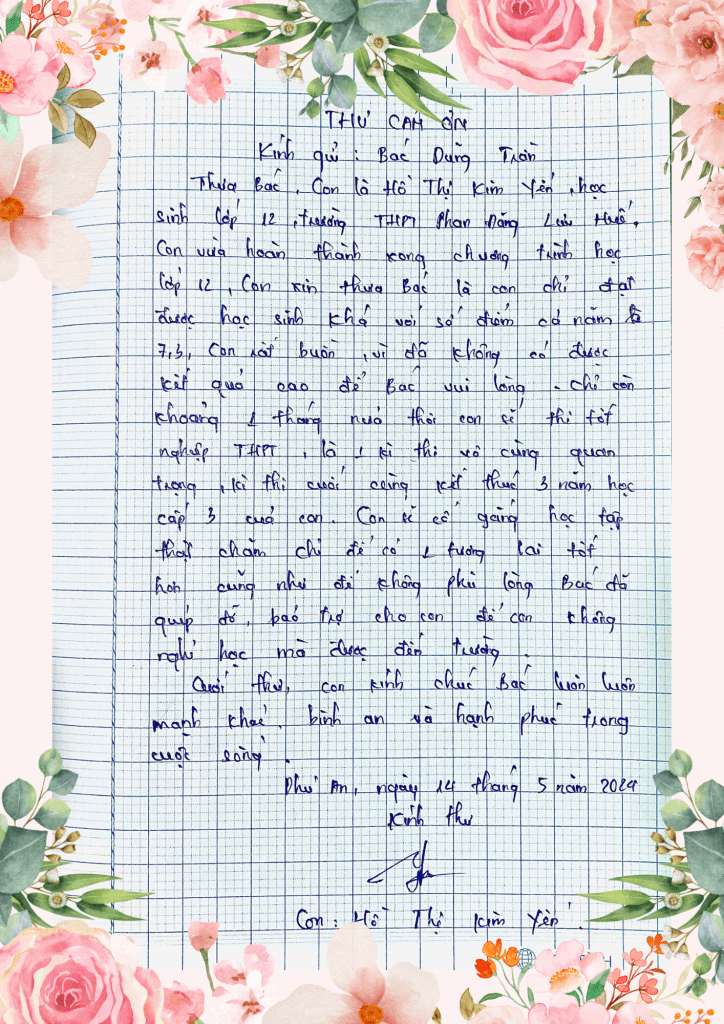 THƯ CẢM ƠN
Kính gửi : Bác Dũng Trần
Thưa Bác, Con là Hồ Thị Kim Yến, học
sinh lớp 12, trường THPT Phan Đăng Lưu Huế.
Con vừa hoàn thành xong chương trình học
lớp 12, Con xin thưa Bác là con chỉ đạt
được học sinh khá với số điểm cả năm là
7,3, Con rất buồn, vì đã không có được
kết quả cao để Bác vui lòng. Chỉ còn
khoảng 1 tháng nữa thôi con sẽ thi tốt
nghiệp THPT, là 1 kì thi vô cùng quan
trọng, kì thi cuối cùng kết thúc 3 năm học
cấp 3 của con. Con sẽ cố gắng học tập
thật chăm chỉ để có 1 tương lai tốt
hơn cũng như để không phụ lòng Bác đã
giúp đỡ, bảo trợ cho con để con không
nghỉ học mà được đến trường.
Cuối thư, con kính chúc Bác luôn luôn
mạnh khoẻ, bình an và hạnh phúc trong
cuộc sống.
Phú An, ngày 14 tháng 5 năm 2024
Kính thư
Con : Hồ Thị Kim Yến.